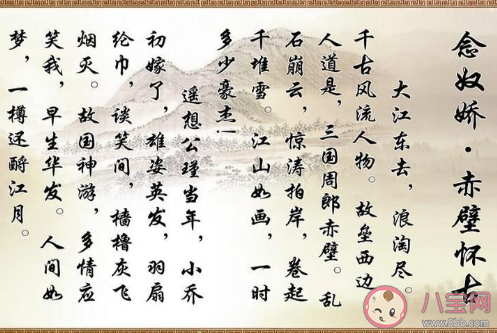 念奴娇·赤壁怀古
大江东去，浪淘尽。
千古风流人物。故垒西边
人道是，三国周郎赤壁。乱
石崩云，惊涛拍岸，卷起
千堆雪。江山如画，一时
多少豪杰！
遥想公瑾当年，小乔
初嫁了，雄姿英发，羽扇
纶巾，谈笑间，樯橹灰飞
烟灭。故国神游，多情应
笑我，早生华发。人间如
梦，一樽还酹江月。
八宝网
www.8bb.com